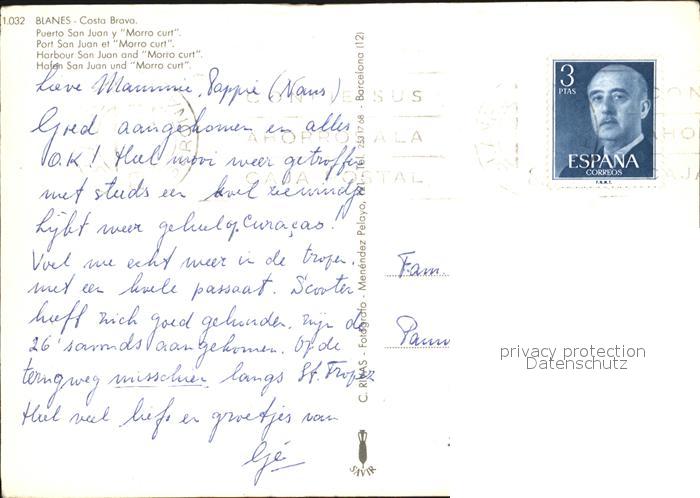 1.032 BLANES - Costa Brava.
Puerto San Juan y "Morro curt".
Port San Juan et "Morro curt".
Harbour San Juan and "Morro curt".
Hafen San Juan und "Morro curt".
Lieve Mammie, Pappie (Nans)
Goed aangekomen en alles
O.K! Heel mooi weer getroffen
met steeds een koel zeewindje
Lijkt weer geheel op Curaçao!
Voel me echt weer in de tropen,
met een koele passaat. Scooter
heeft zich goed gehouden, zijn de
26' s'avonds aangekomen. Op de
terugweg misschien langs St. Tropez
Heel veel liefs en groetjes van
Gé
C. RIBAS - Fotógrafo - Menéndez Pelayo, Tel. 253 17 68 - Barcelona (12)
SAVIR
CON SUS
AHORROS A LA
CAJA POSTAL
3
PTAS
ESPAÑA
CORREOS
F.N.M.T.
CON
AHO
CAJA
Fam.
privacy protection
Datenschutz